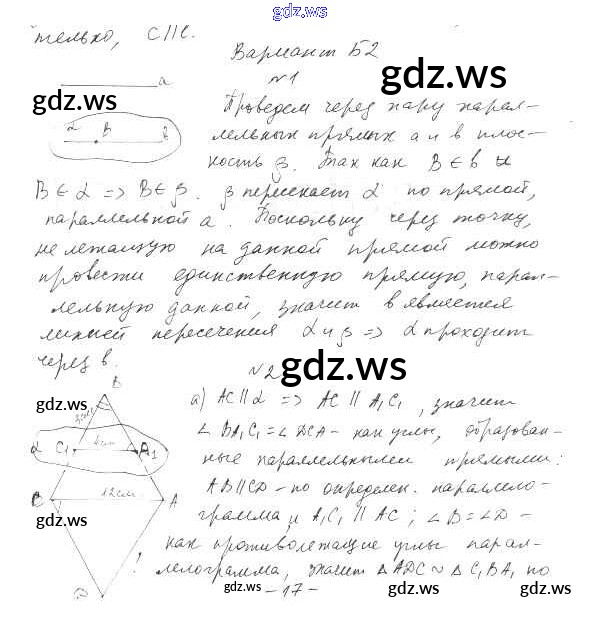 gdz.ws
только, c || e.
Вариант Б2
gdz.ws
№1
a
gdz.ws
Проведем через пару парал-
α B в
лельных прямых a и в плос-
gdz.ws
кость β. Так как B ∈ в и
B ∈ α => B ∈ β. β пересекает α по прямой,
параллельной a. Поскольку через точку,
не лежащую на данной прямой можно
провести единственную прямую, парал-
лельную данной, значит в является
линией пересечения α и β => α проходит
через в.
№2
gdz.ws
B
gdz.ws
а) AC || α => AC || A₁C₁, значит
α C₁ 4см A₁
∠ BA₁C₁ = ∠ DCA - как углы, образован-
gdz.ws
ные параллельными прямыми:
C 12см A
AB || CD - по определен. параллело-
gdz.ws
грамма, и A₁C₁ || AC; ∠B = ∠D -
как противолежащие углы парал-
D
лелограмма, значит △ ADC ~ △ C₁BA₁ по
gdz.ws gdz.ws gdz.ws
- 17 -